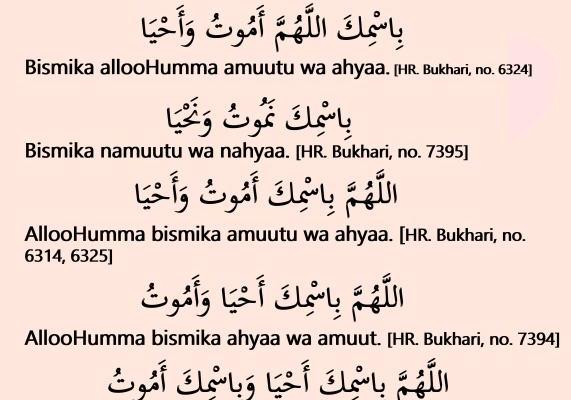 بِاسْمِكَ اللَّهُمَّ أَمُوتُ وَأَحْيَا
Bismika allooHumma amuutu wa ahyaa. [HR. Bukhari, no. 6324]
بِاسْمِكَ نَمُوتُ وَنَحْيَا
Bismika namuutu wa nahyaa. [HR. Bukhari, no. 7395]
اللَّهُمَّ بِاسْمِكَ أَمُوتُ وَأَحْيَا
AllooHumma bismika amuutu wa ahyaa. [HR. Bukhari, no.
6314, 6325]
اللَّهُمَّ بِاسْمِكَ أَحْيَا وَأَمُوتُ
AllooHumma bismika ahyaa wa amuut. [HR. Bukhari, no. 7394]
اللَّهُمَّ بِاسْمِكَ أَحْيَا وَبِاسْمِكَ أَمُوتُ